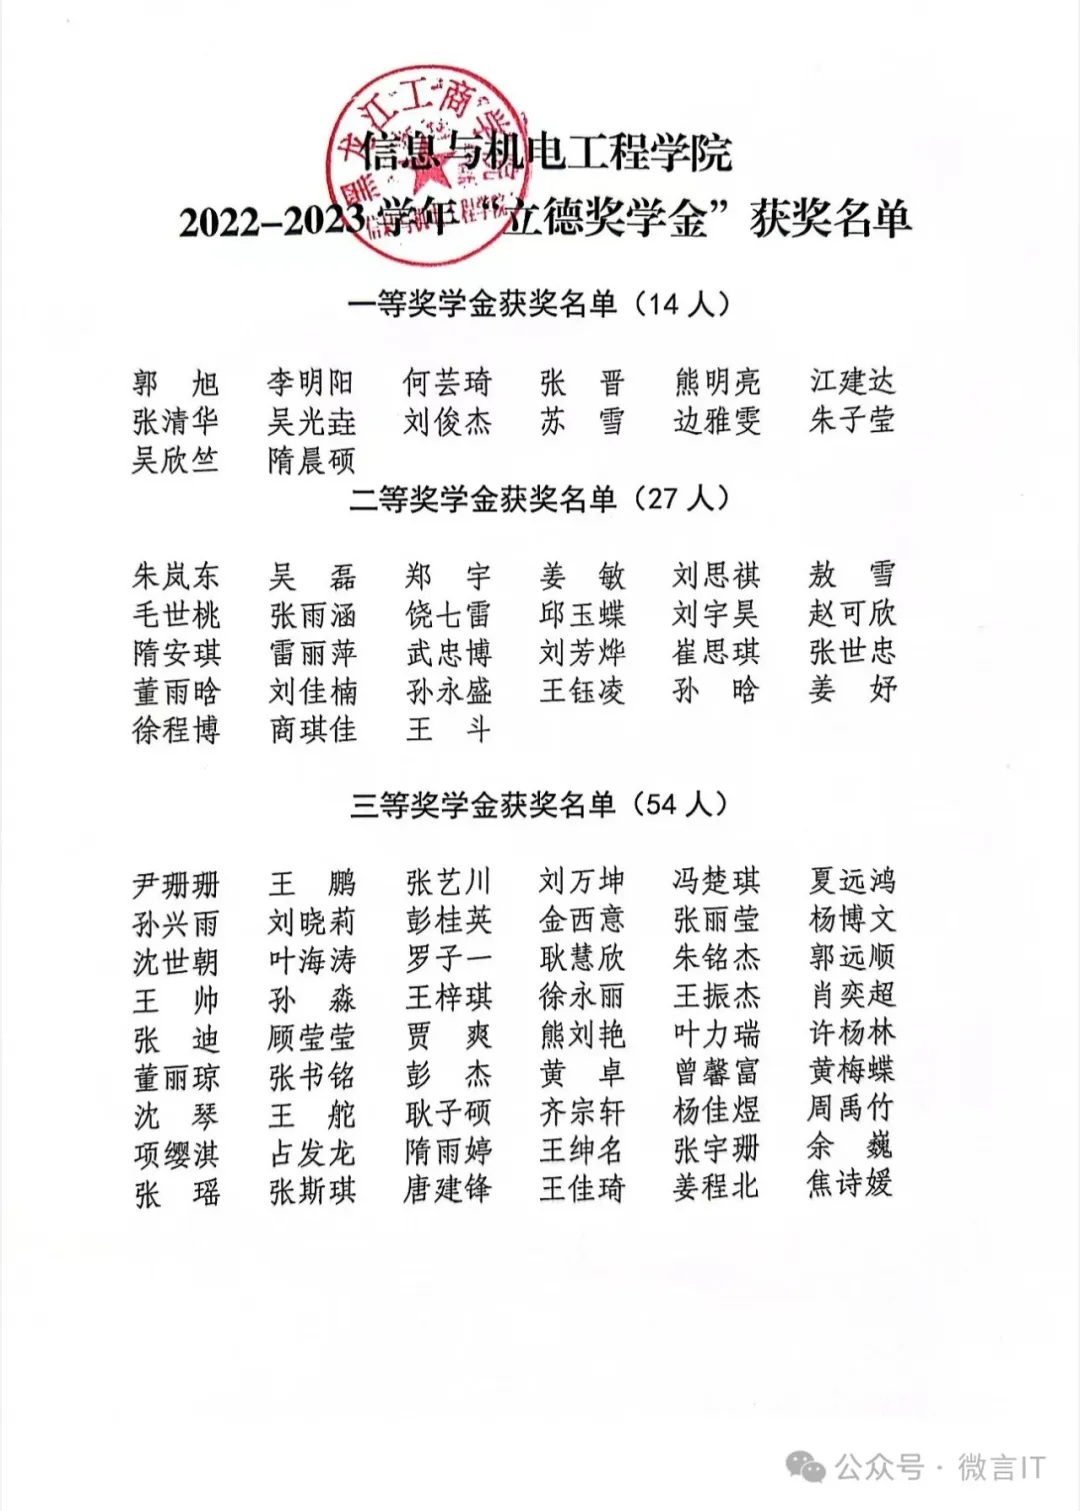 黑龙江工商学院
信息与机电工程学院
信息与机电工程学院
2022-2023 学年“立德奖学金”获奖名单
一等奖学金获奖名单（14 人）
郭 旭 李明阳 何芸琦 张 晋 熊明亮 江建达
张清华 吴光垚 刘俊杰 苏 雪 边雅雯 朱子莹
吴欣竺 隋晨硕
二等奖学金获奖名单（27 人）
朱岚东 吴 磊 郑 宇 姜 敏 刘思祺 敖 雪
毛世桃 张雨涵 饶七雷 邱玉蝶 刘宇昊 赵可欣
隋安琪 雷丽萍 武忠博 刘芳烨 崔思琪 张世忠
董雨晗 刘佳楠 孙永盛 王钰凌 孙 晗 姜 妤
徐程博 商琪佳 王 斗
三等奖学金获奖名单（54 人）
尹珊珊 王 鹏 张艺川 刘万坤 冯楚琪 夏远鸿
孙兴雨 刘晓莉 彭桂英 金西意 张丽莹 杨博文
沈世朝 叶海涛 罗子一 耿慧欣 朱铭杰 郭远顺
王 帅 孙 淼 王梓琪 徐永丽 王振杰 肖奕超
张 迪 顾莹莹 贾 爽 熊刘艳 叶力瑞 许杨林
董丽琼 张书铭 彭 杰 黄 卓 曾馨富 黄梅蝶
沈 琴 王 舵 耿子硕 齐宗轩 杨佳煜 周禹竹
项缨淇 占发龙 隋雨婷 王绅名 张宇珊 余 巍
张 瑶 张斯琪 唐建锋 王佳琦 姜程北 焦诗媛
公众号 · 微言IT